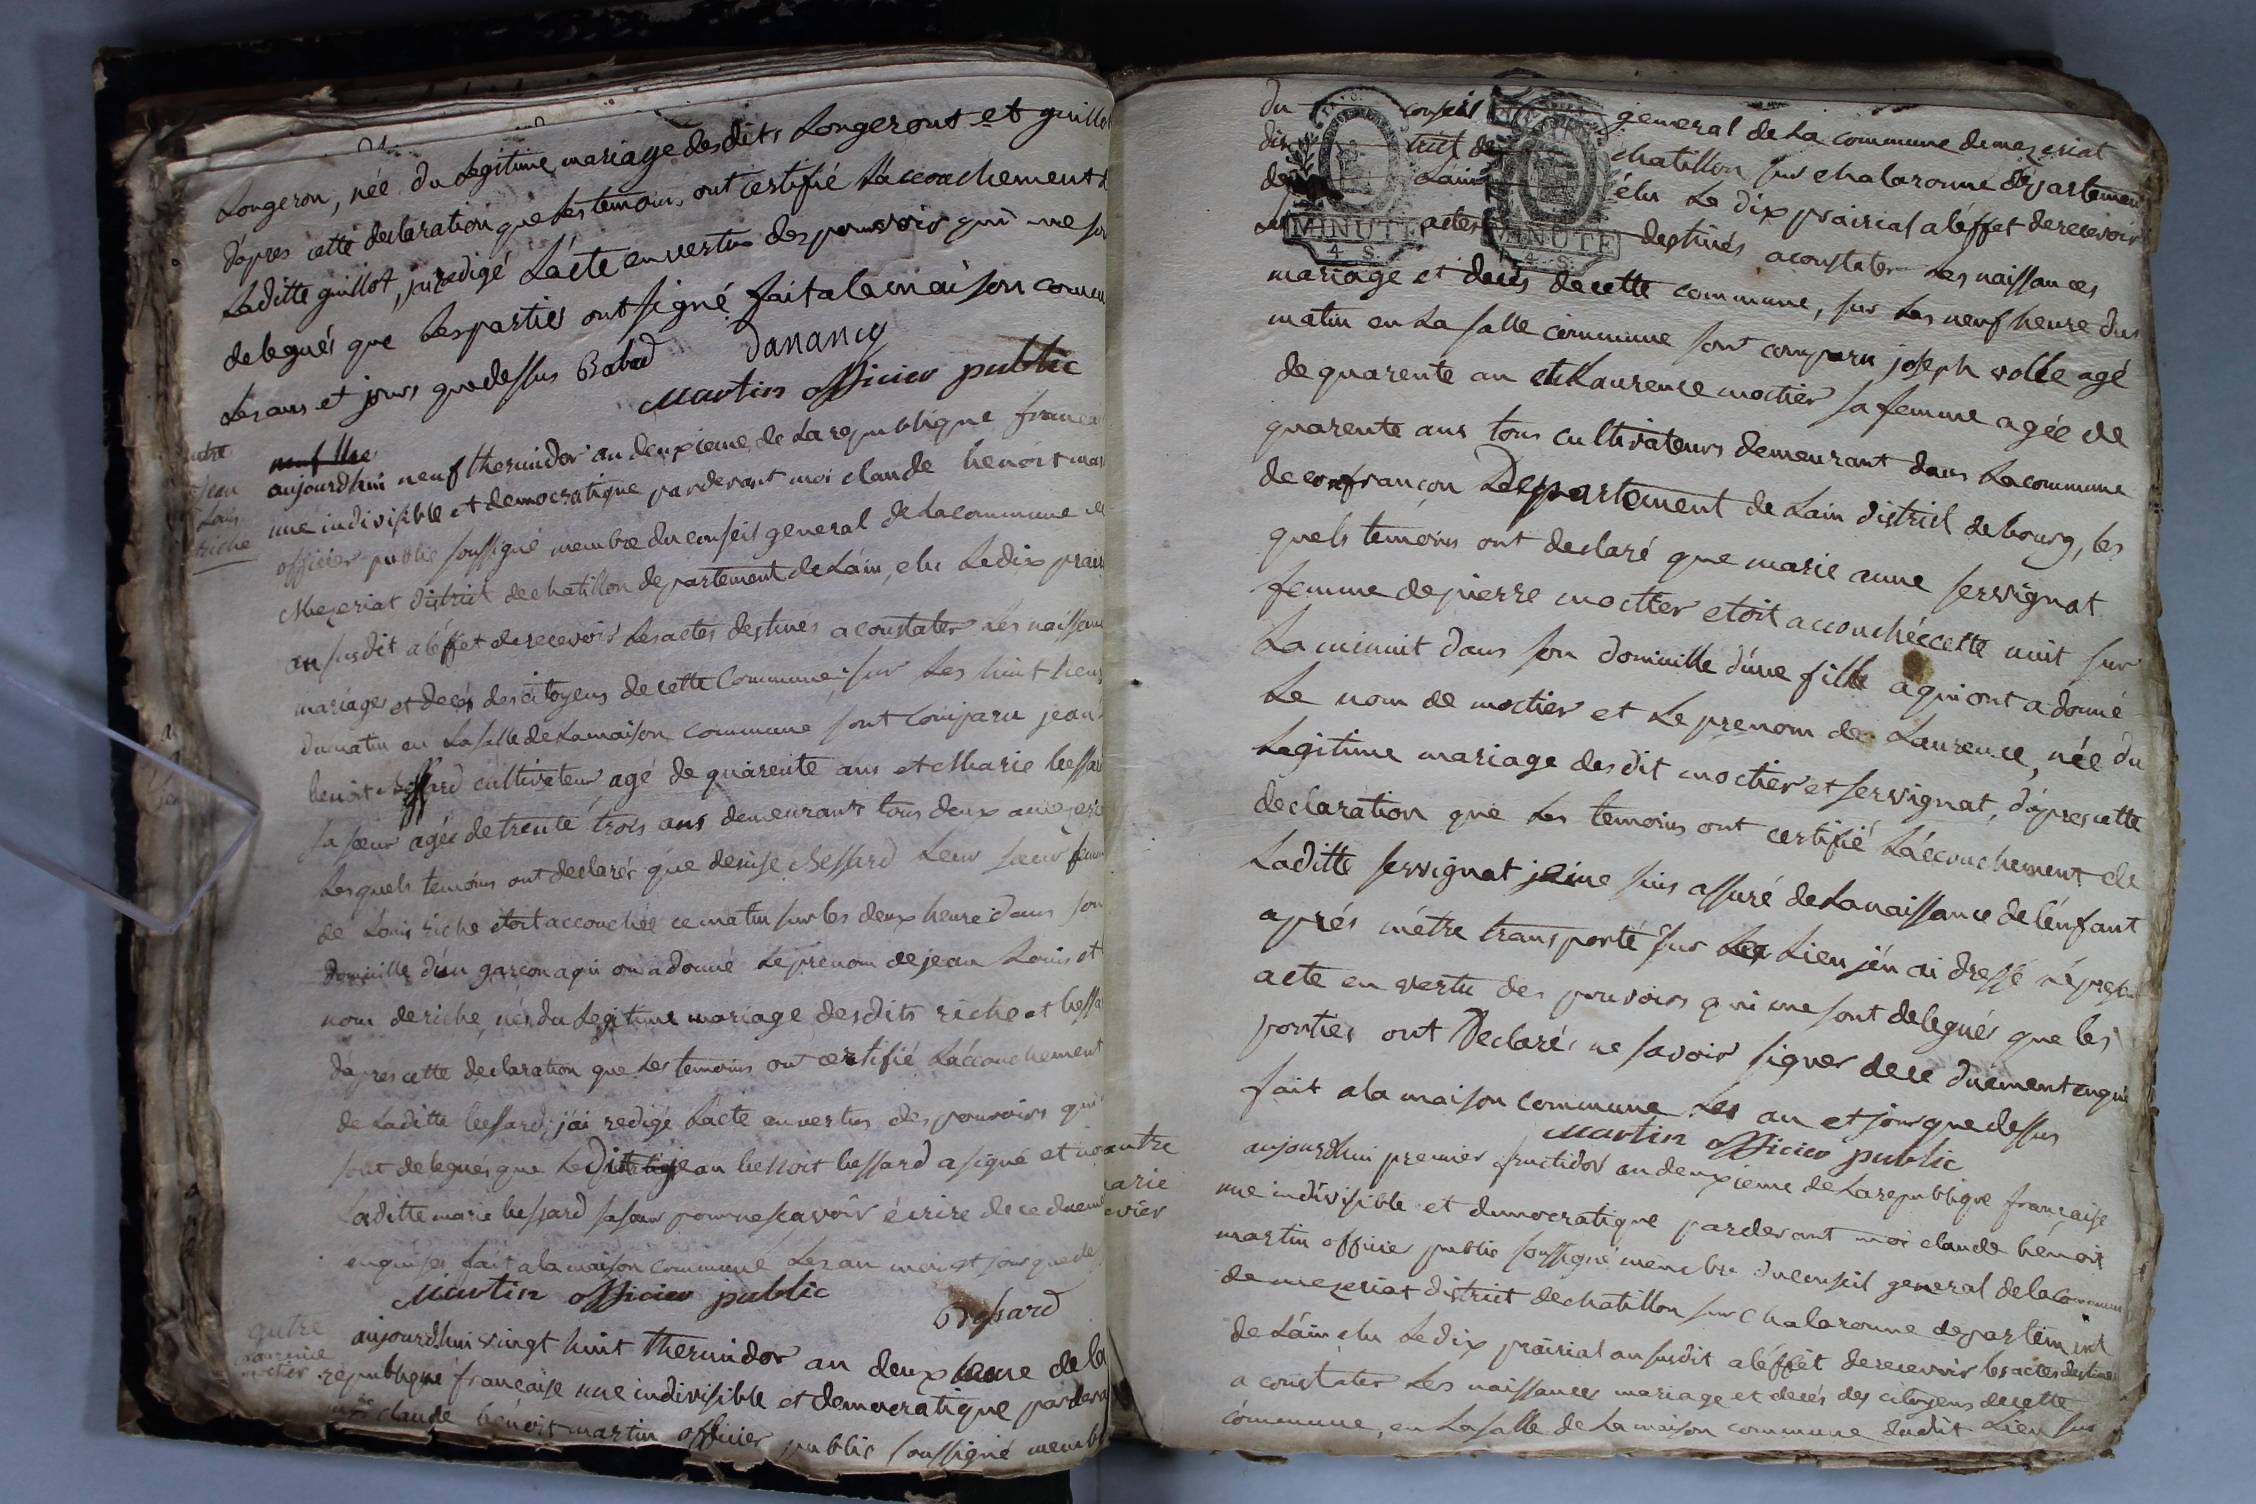 Longeron, née du Legitime mariage desdits Longeront et guillot
d'apres cette declaration que Les temoins ont certifié L'accouchement de
Laditte guillot, j'ai redigé L'acte en vertu des pouvoirs qui me son
delegués que Les parties ont signé fait a la maison commun
Les ans et jours que dessus Babad Dananciy
Martin officier public
autre
jean
Louis
riche
neuf ther
aujourdhui neuf thermidor an deuxieme de La republique francai
une indivisible et democratique pardevant moi claude benoit mar
officier public soussigné membre du conseil general de La commune de
Mezeriat district de chatillon departement de L'ain, elu Le dix prair
an susdit a l'éffet de recevoir Les actes destinés a constater Les naissan
mariages et decés des citoyens de cette Commune sur Les huit heur
du matin en La salle de La maison commune sont comparu jean
benoit Bessard cultivateur agé de quarente ans et Marie bessar
sa soeur agée de trente trois ans demeurants tous deux a mezeri
Lesquels temoins ont declarés que denise Bessard Leur soeur femm
de Louis riche etoit accouchée ce matin sur les deux heure dans son
domicille d'un garcon a qui on a donné Le prenom de jean Louis et
nom de riche, nés du Legitime mariage desdits riche et bessa
d'apres cette declaration que Les temoins ont certifié L'accouchement
de Laditte bessard, j'ai redigé L'acte en vertus des pouvoirs qui
sont delegués que Ledit jean benoit bessard a signé et no
Laditte marie bessard sa soeur pour ne sçavoir écrire de ce duem
enquises fait a la maison commune Les an mois et jour que de
Martin officier public
Bessard
autre
Laurence
moctier
aujourdhui vingt huit thermidor an deuxieme de la
republique française une indivisible et democratique pardeva
moi claude benoit martin officier public soussigné memb
du conseil general de La commune de mezeriat
district de chatillon sur chalaronne departement
de L'ain élu Le dix prairial a l'éffet de recevoir
Les actes destinés a constater Les naissances
MINUTE
4 S.
MINUTE
4 S.
mariage et decés de cette commune, sur Les neuf heure du
matin en La salle commune sont comparu joseph volle agé
de quarente an et Laurence moctier sa femme agée de
quarente ans tous cultivateurs demeurant dans La commune
de confrançon Departement de Lain district de bourg, les
quels temoins ont declaré que marie anne servignat
femme de pierre moctier etoit accouchée cette nuit sur
La minuit dans son domicille d'une fille a qui ont a donné
Le nom de moctier et Le prenom de Laurence, née du
Legitime mariage desdit moctier et servignat, d'apres cette
declaration que Les temoins ont certifié L'accouchement de
Laditte servignat je me suis assuré de La naissance de l'énfant
aprés m'étre transporté sur Les Lieu j'én ai dressé Le present
acte en vertu des pouvoirs qui me sont delegués que les
parties ont Declarés ne savoir signer de ce duement enqui
fait a la maison commune Les an et jour que dessus
Martin officier public
autre
marie
evier
aujourdhui premier fructidor an deuxieme de La republique française
une indivisible et dimocratique pardevant moi claude bénoit
martin officier public soussigné membre du conseil general de la Commun
de mezeriat district de chatillon sur chalaronne departement
de L'ain elu Le dix prairial an susdit a l'éffet de recevoir les actes destiné
a constater Les naissances mariage et decés des citoyens de cette
commune, en La salle de La maison commune dudit Lieu sur